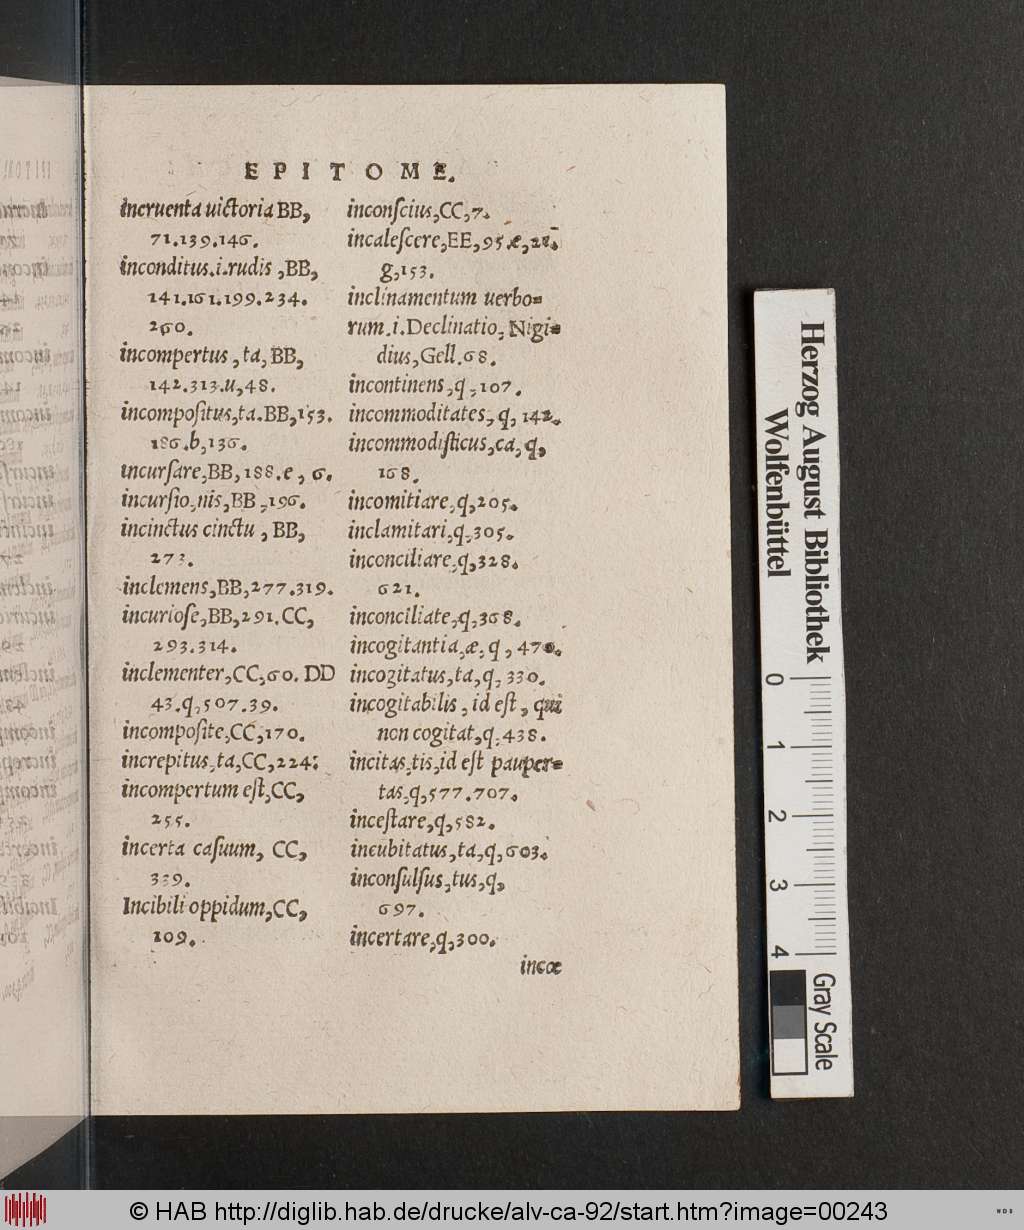 EPITOME.
incruenta uictoria BB,
71.139.146.
inconditus.i.rudis, BB,
141.161.199.234.
260.
incompertus, ta, BB,
142.313.u,48.
incompositus,ta.BB,153.
186.b,136.
incursare,BB,188.e, 6.
incursio,nis,BB,196.
incinctus cinctu, BB,
273.
inclemens,BB,277.319.
incuriose,BB,291.CC,
293.314.
inclementer,CC,60. DD
43.q,507.39.
incomposite,CC,170.
increpitus,ta,CC,224.
incompertum est,CC,
255.
incerta casuum, CC,
339.
Incibili oppidum,CC,
109.
inconscius,CC,7.
incalescere,EE,95.e,
g,153.
inclinamentum uerbo-
rum.i.Declinatio, Nigi-
dius,Gell.68.
incontinens,q,107.
incommoditates, q, 142.
incommodisticus,ca, q,
168.
incomitiare,q,205.
inclamitari,q,305.
inconciliare,q,328.
621.
inconciliate,q,368.
incogitantia,æ, q, 470.
incogitatus,ta,q,330.
incogitabilis, id est, qui
non cogitat,q,438.
incitas,tis,id est pauper-
tas,q,577.707.
incestare,q,582.
incubitatus,ta,q,603.
inconsulsus,tus,q,
697.
incertare,q,300.
incœ
Herzog August Bibliothek
Wolfenbüttel
0 1 2 3 4
Gray Scale
© HAB http://diglib.hab.de/drucke/alv-ca-92/start.htm?image=00243